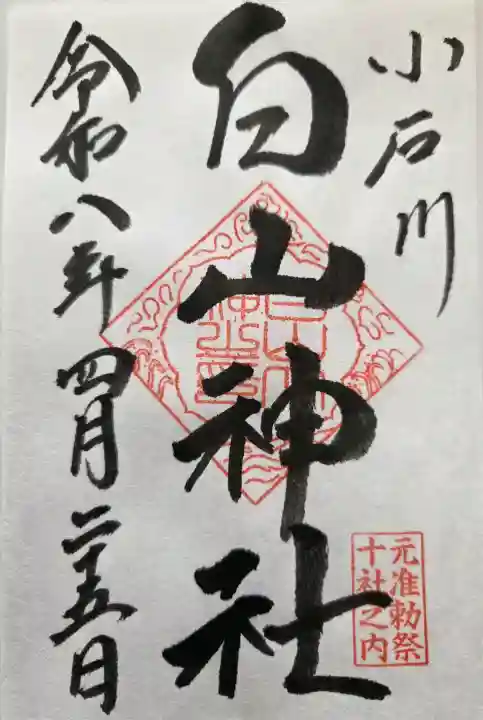 小石川
白山神社
元准勅祭
十社之内
令和八年四月二十五日